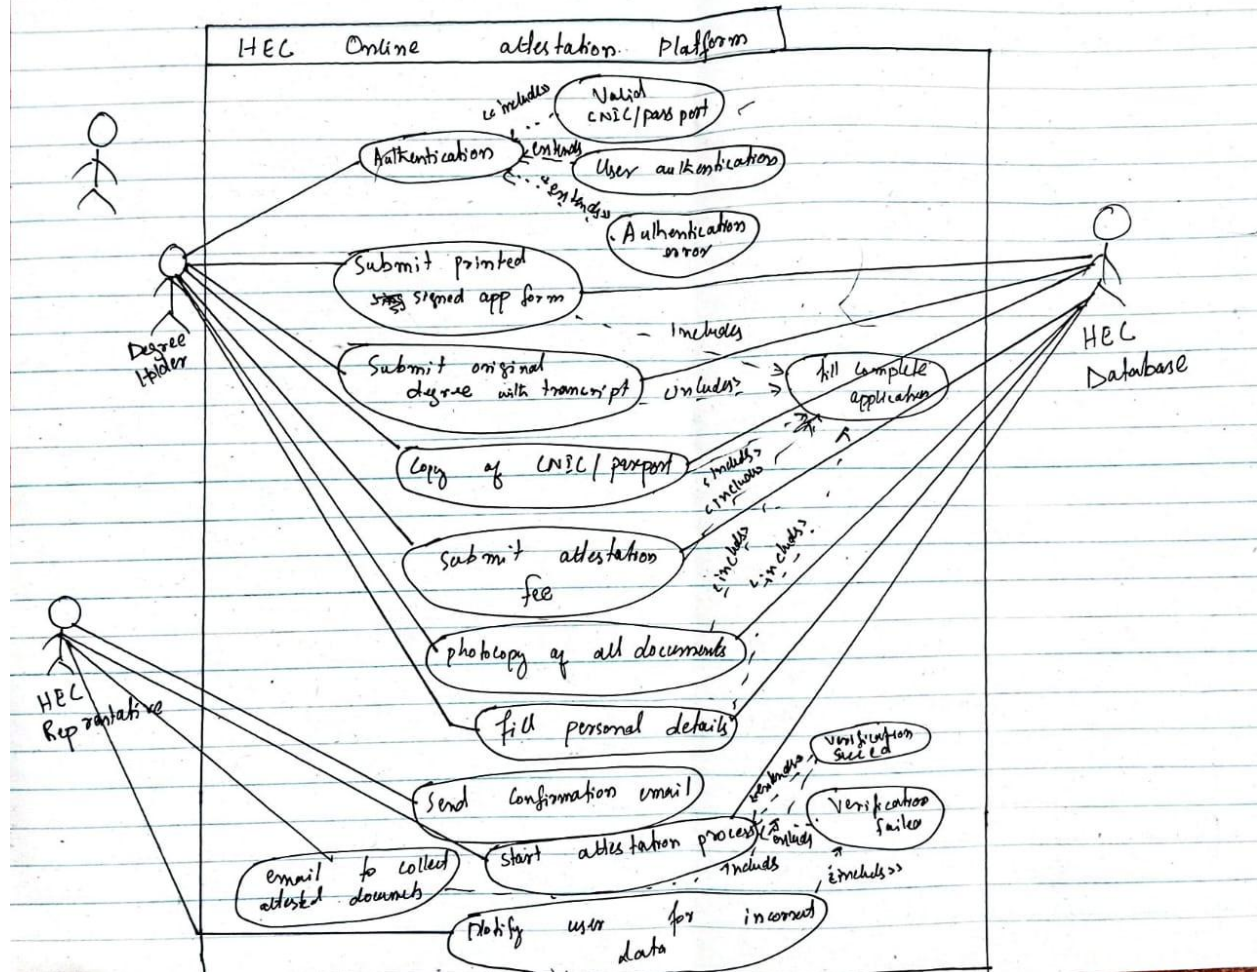 HEC Online attestation Platform
Valid
CNIC/passport
<<includes
Authentication
extends
User authentication
extends>>
Authentication
error
Submit printed
signed app form
Degree
Holder
HEC
Database
Includes
Submit original
degree with transcript
includes>
fill complete
application
Copy of CNIC/passport
<includes>
<includes
Submit attestation
fee
<includes>
<includes>
photocopy of all documents
HEC
fill personal details
verification
<extends>
Send Confirmation email
Verification
failed
Start attestation process
includes
email to collect
attested documents
<includes>>
Notify user for incorrect
data